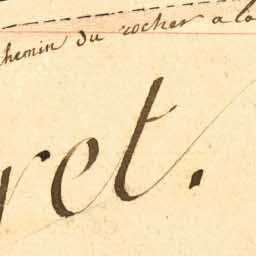 chemin du rocher a la
ret.